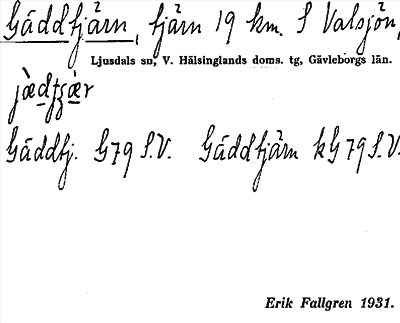 Gäddtjärn, tjärn 19 km. S Valsjön,
Ljusdals sn, V. Hälsinglands doms. tg, Gävleborgs län.
Gäddtj. G79 S.V. Gäddtjärn kG79 S.V.
Erik Fallgren 1931.